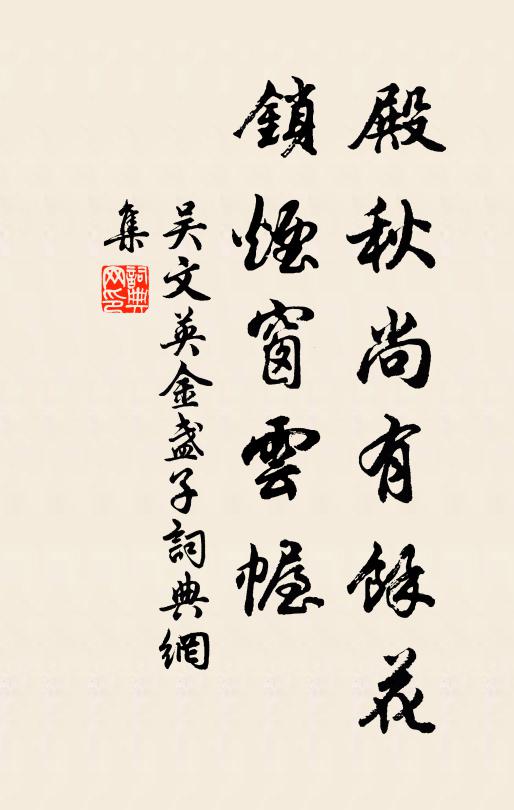 殿秋尚有餘花
鎖煙窗雲幄
吴文英金盞子詞典網
集
詞典網印